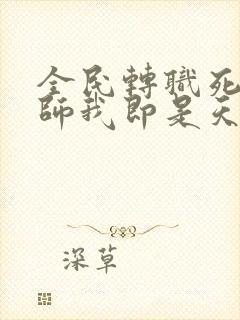 全民轉職死
師我即是天
深草